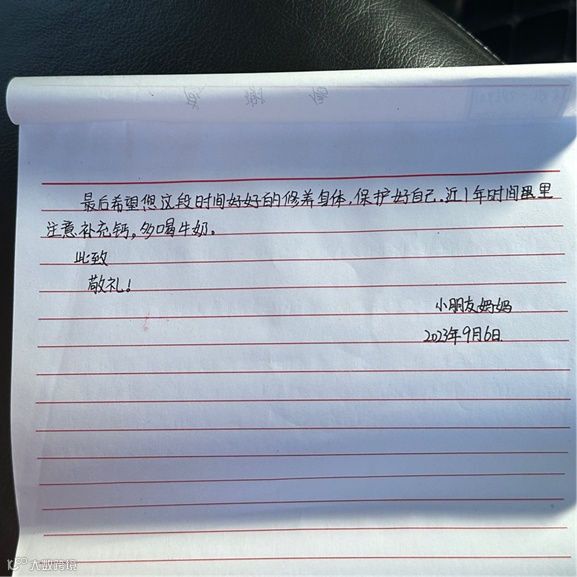 最后希望您这段时间好好的修养身体,保护好自己.近1年时间里
注意补充钙,多喝牛奶。
此致
敬礼!
小朋友妈妈
2023年9月6日
大数跨境